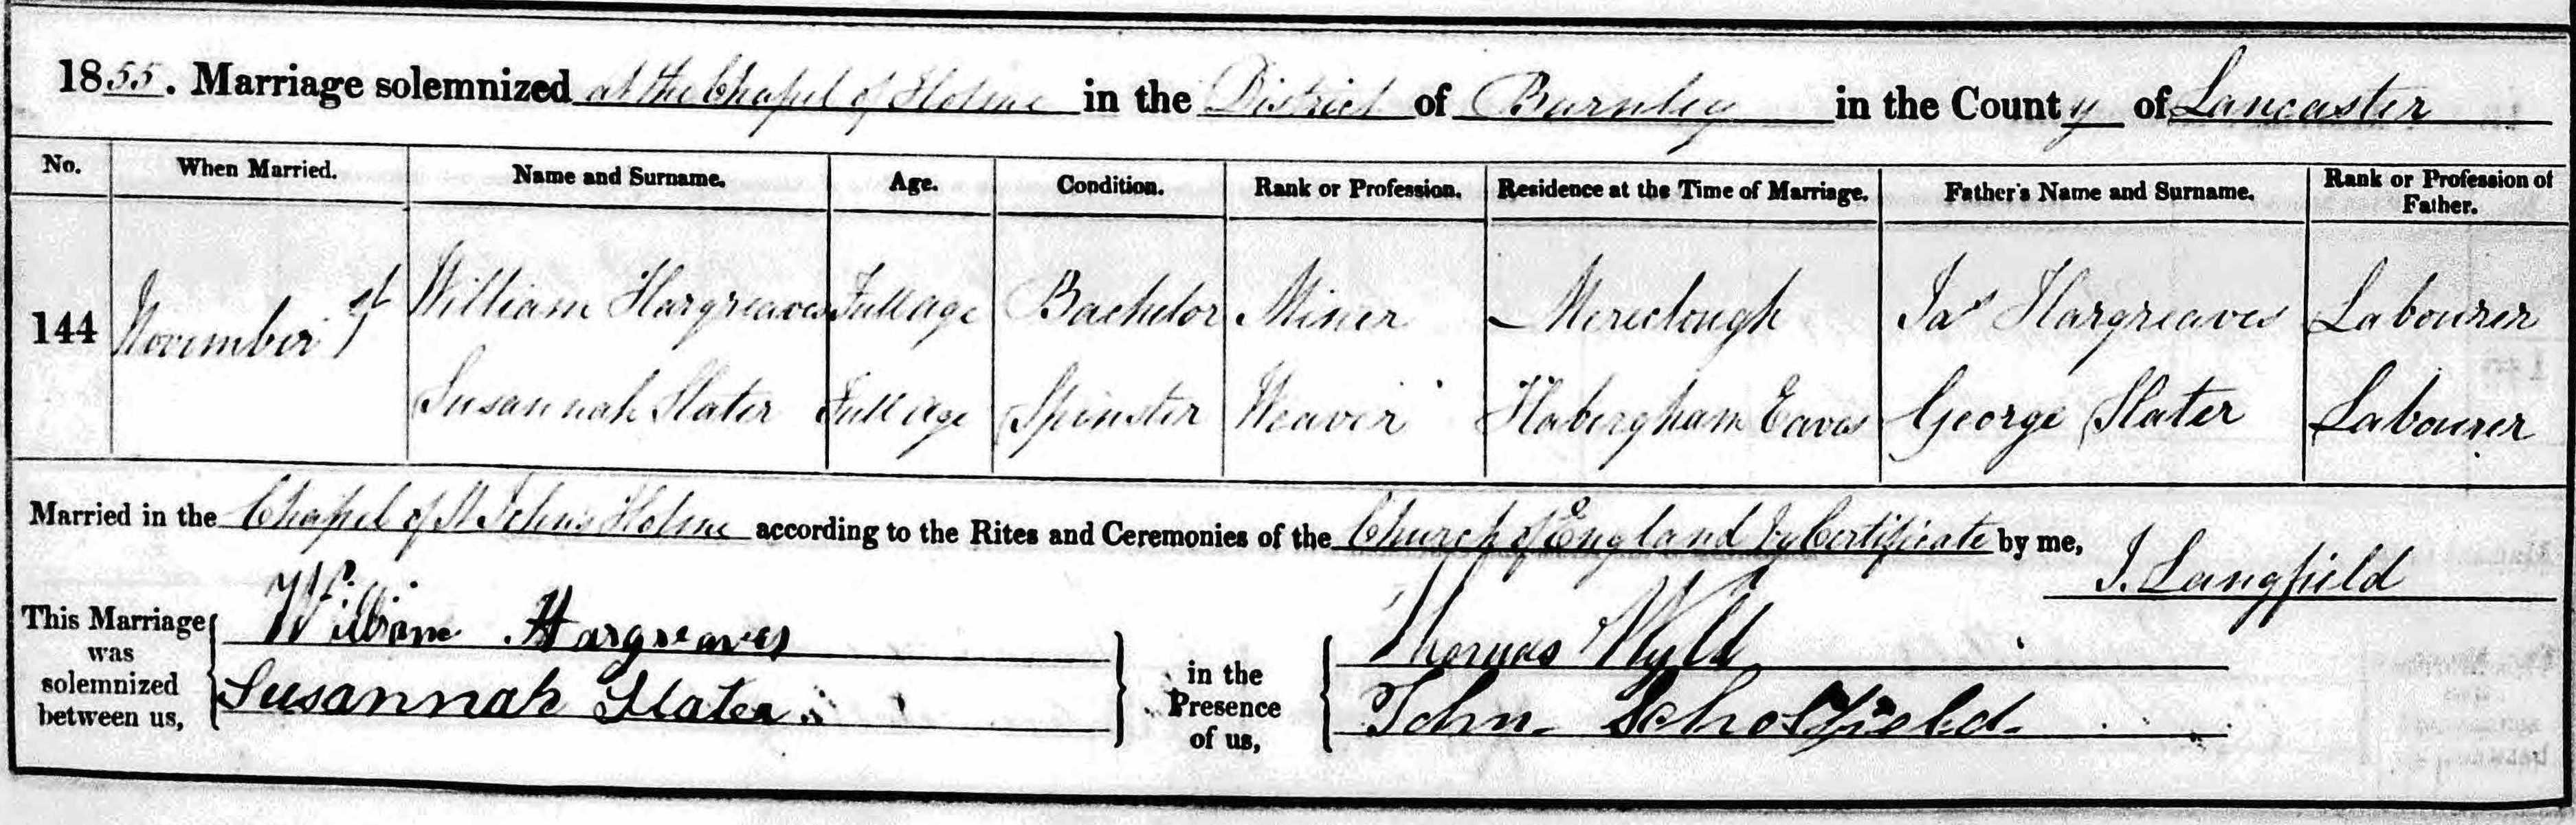 1855. Marriage solemnized at the Chapel of Holme in the District of Burnley in the County of Lancaster
No. When Married. Name and Surname. Age. Condition. Rank or Profession. Residence at the Time of Marriage. Father's Name and Surname. Rank or Profession of Father.
144 November 1st William Hargreaves Full age Bachelor Miner Mereclough Jas Hargreaves Labourer
Susannah Slater Full age Spinster Weaver Habergham Eaves George Slater Labourer
Married in the Chapel of St John's Holme according to the Rites and Ceremonies of the Church of England by Certificate by me,
J. Langfield
This Marriage was solemnized between us,
William Hargreaves
Susannah Slater
in the Presence of us,
Thomas Wyld
John Scholfield